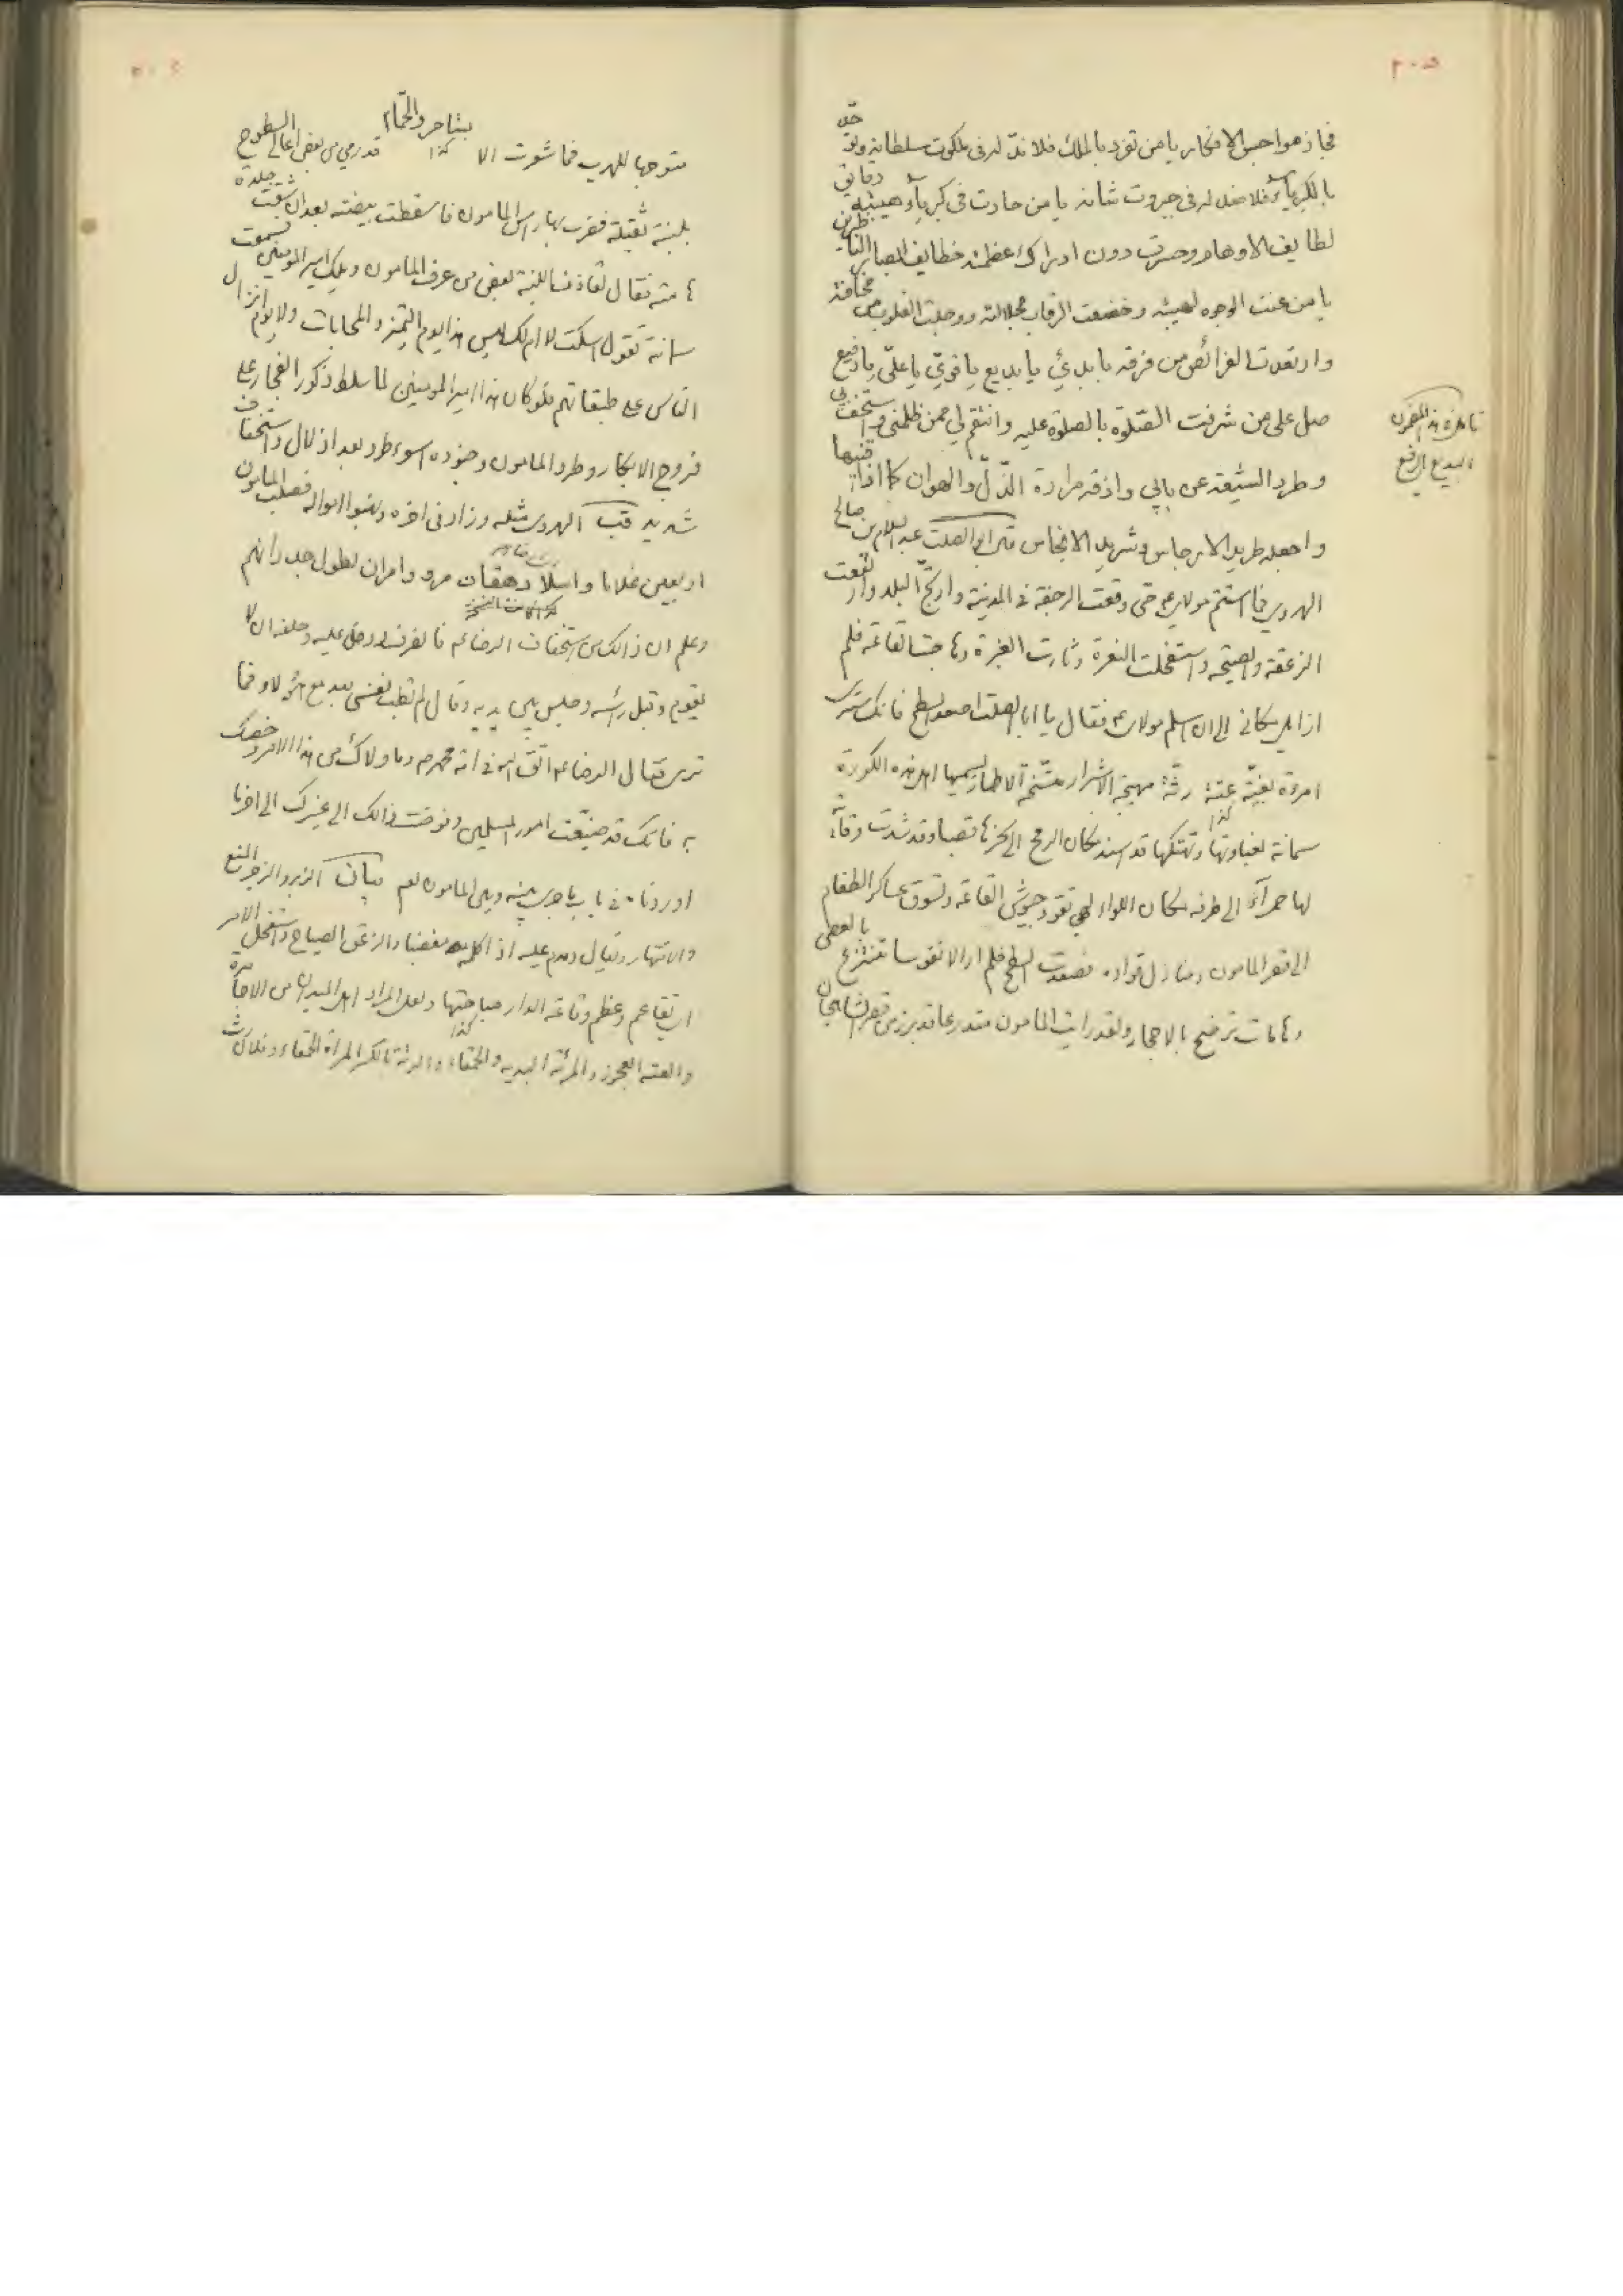 ٢٠٥
فجاز هواجس الافكار يا من تفرد بالملك فلا ندّ له فى ملكوت سلطانه وتوحّد
بالكبرياء فلا ضد له فى جبروت شانه يا من حارت فى كبرياء هيبته دقايق
لطايف الاوهام وحسرت دون ادراك عظمته خطايف ابصار الناظرين
يا من عنت الوجوه لهيبته وخضعت الرقاب لجلالته ووجلت القلوب من مخافته
وارتعدت الفرائص من فرقه يا بدئ يا بديع يا قوي يا علي يا رفيع
صل على من شرفت الصلوة بالصلوة عليه وانتقم لي ممن ظلمنى واستخف بي
وطرد الشيعة عن بابي واذقه مرارة الذل والهوان كما اذاقنيها
واجعله طريد الارجاس وشريد الانجاس قال ابو الصلت عبد السلام بن صالح
الهروي فما استتم مولاي حتى وقعت الرجفة فى المدينة وارتج البلد وارتفعت
الزعقة والصيحة واستفحلت النعرة وثارت الغبرة وهاجت القاعة فلم
ازايل مكانى الى ان سلم مولاى فقال يا ابا الصلت اصعد السطح فانك سترى
امرءة بغيّة عثة رثّة مهيجة الاشرار متسخة الاطمار يسميها اهل هذه الكورة
سمانة لغباوتها وتهتكها قد اسند مكان الرمح الى نحرها قصبا وقد شدت وقاية
كذا
لها حمراء الى طرفه مكان اللواء فهى تقود جيوش القاعة وتسوق عساكر الطغام
الى قصر المامون ومنازل قواده فصعدت السطح فلم ار الا نفوسا تنتزع بالعصى
وهامات ترضخ بالاحجار ولقد رايت المامون متدرعا قد برز من قصر الشاهجان
البديع الرفيع
متوجها للهرب فما شعرت الا كذا بشاجرد الحجام قد رمى من بعض اعالي السطوح
بلبنة ثقيلة فضرب بها راس المامون فاسقطت بيضته بعد ان شقت جلدة
هامته فقال لقاذف اللبنة بعض من عرف المامون ويلك امير المومنين فسمعت
سمانة تقول اسكت لا ام لك ليس هذا يوم التميز والمحابات ولا يوم انزال
الناس على طبقاتهم فلو كان هذا امير المومنين لما سلط ذكور الفجار على
فروج الابكار وطرد المامون وجنوده اسوء طرد بعد اذلال واستخفاف
شديد قب الهروى مثله وزاد فى اخره ونهبوا امواله فصلب المامون
اربعين غلاما واسلا دهقان مرو وامر ان يطول جدرانهم
كذا كانت النسخة
وعلم ان ذالك من استخفاف الرضا فانصرف ودخل عليه وحلفه ان لا
يقوم وقبل راسه وجلس بين يديه وقال لم تطب نفسى بعد مع هؤلاء فما
ترى فقال الرضا اتق الله فى امة محمد وما ولاك من هذا الامر وخصك
به فانك قد ضيعت امور المسلمين وفوضت ذالك الى غيرك الى اخر ما
اوردناه فى باب ما جرى بينه وبين المامون بيان الزبر والزجر المنع
والانتهار ويقال دمدم عليه اذا كلمه مغضبا والزعق الصياح واستفحل الامر
اى تفاقم وعظم وقاعة الدار ساحتها ولعل المراد اهل الميدان من الاجامرة
والعثة العجوز والمرئة البذيه والحمقاء والرثة بالكسر المراة الحمقاء وفلان رث
كذا